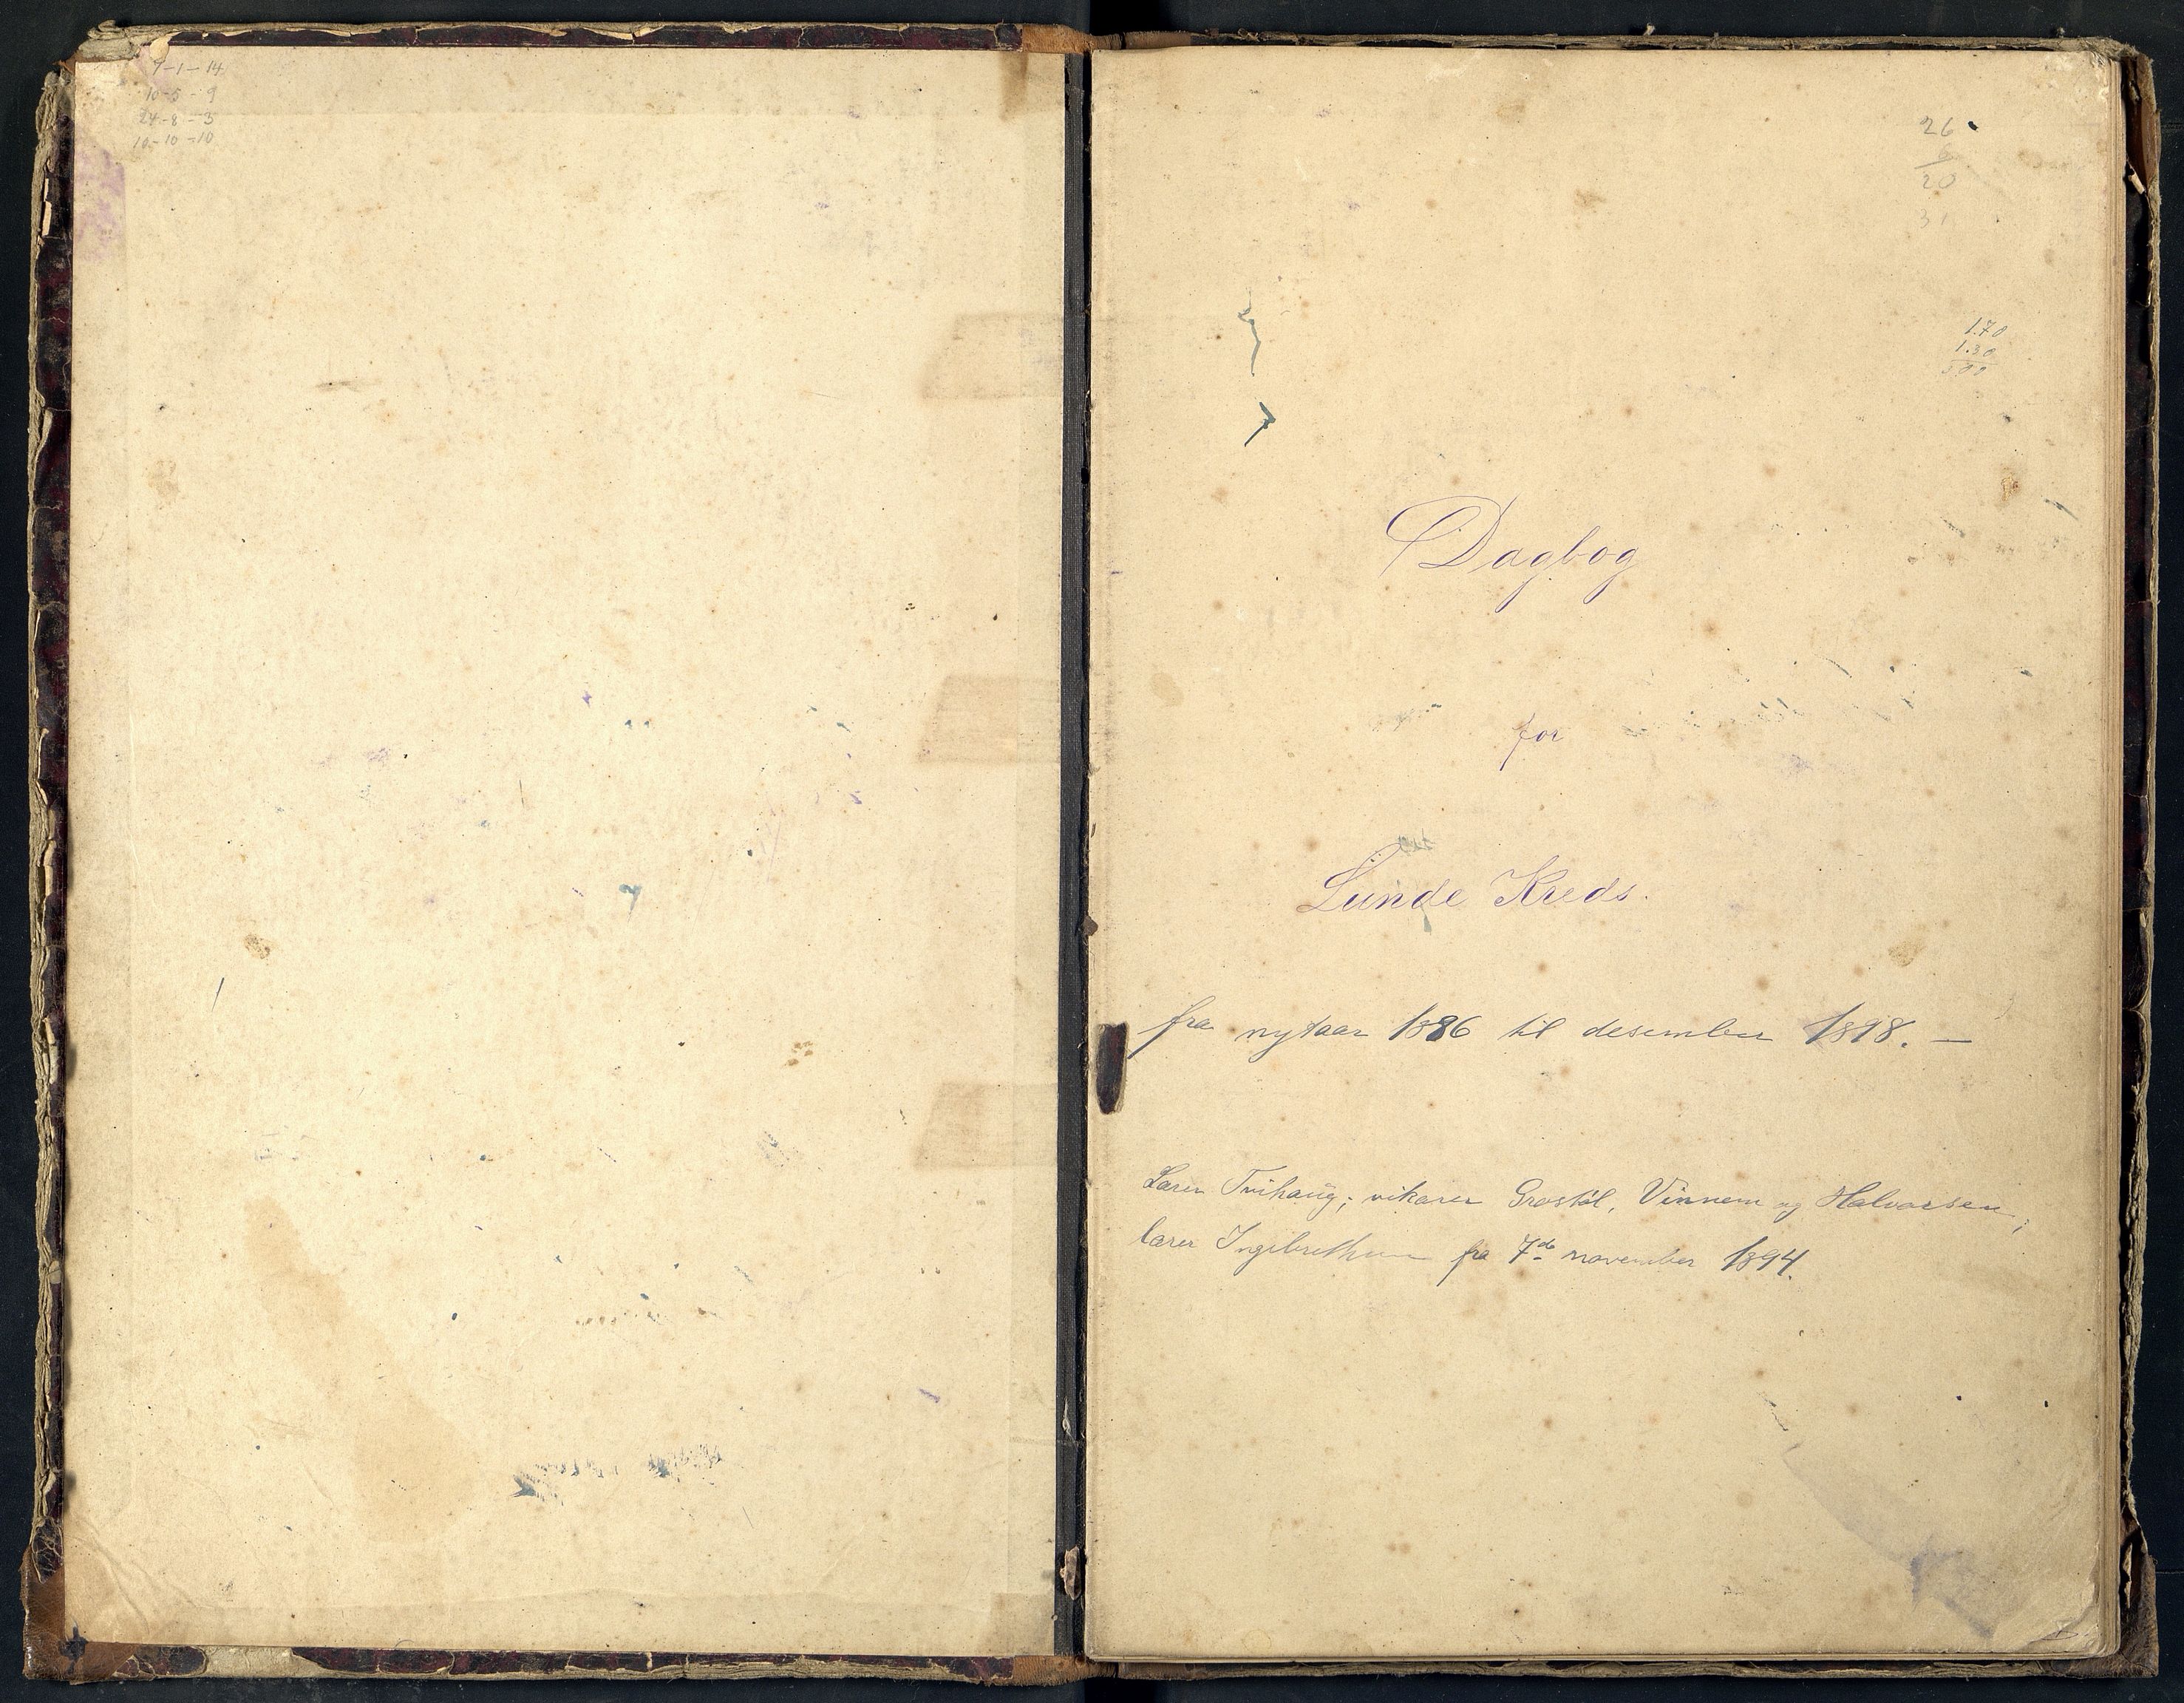 9-1-14
10-5-9
24-8-3
10-10-10
26
6
20
31
1.70
1.30
Dagbog
for
Lunde Kreds.
fra nytaar 1886 til desember 1898. —
Lærer Tvihaug; vikarer Grostøl, Vinnem og Halvorsen;
lærer Ingebrethsen fra 7de november 1894.